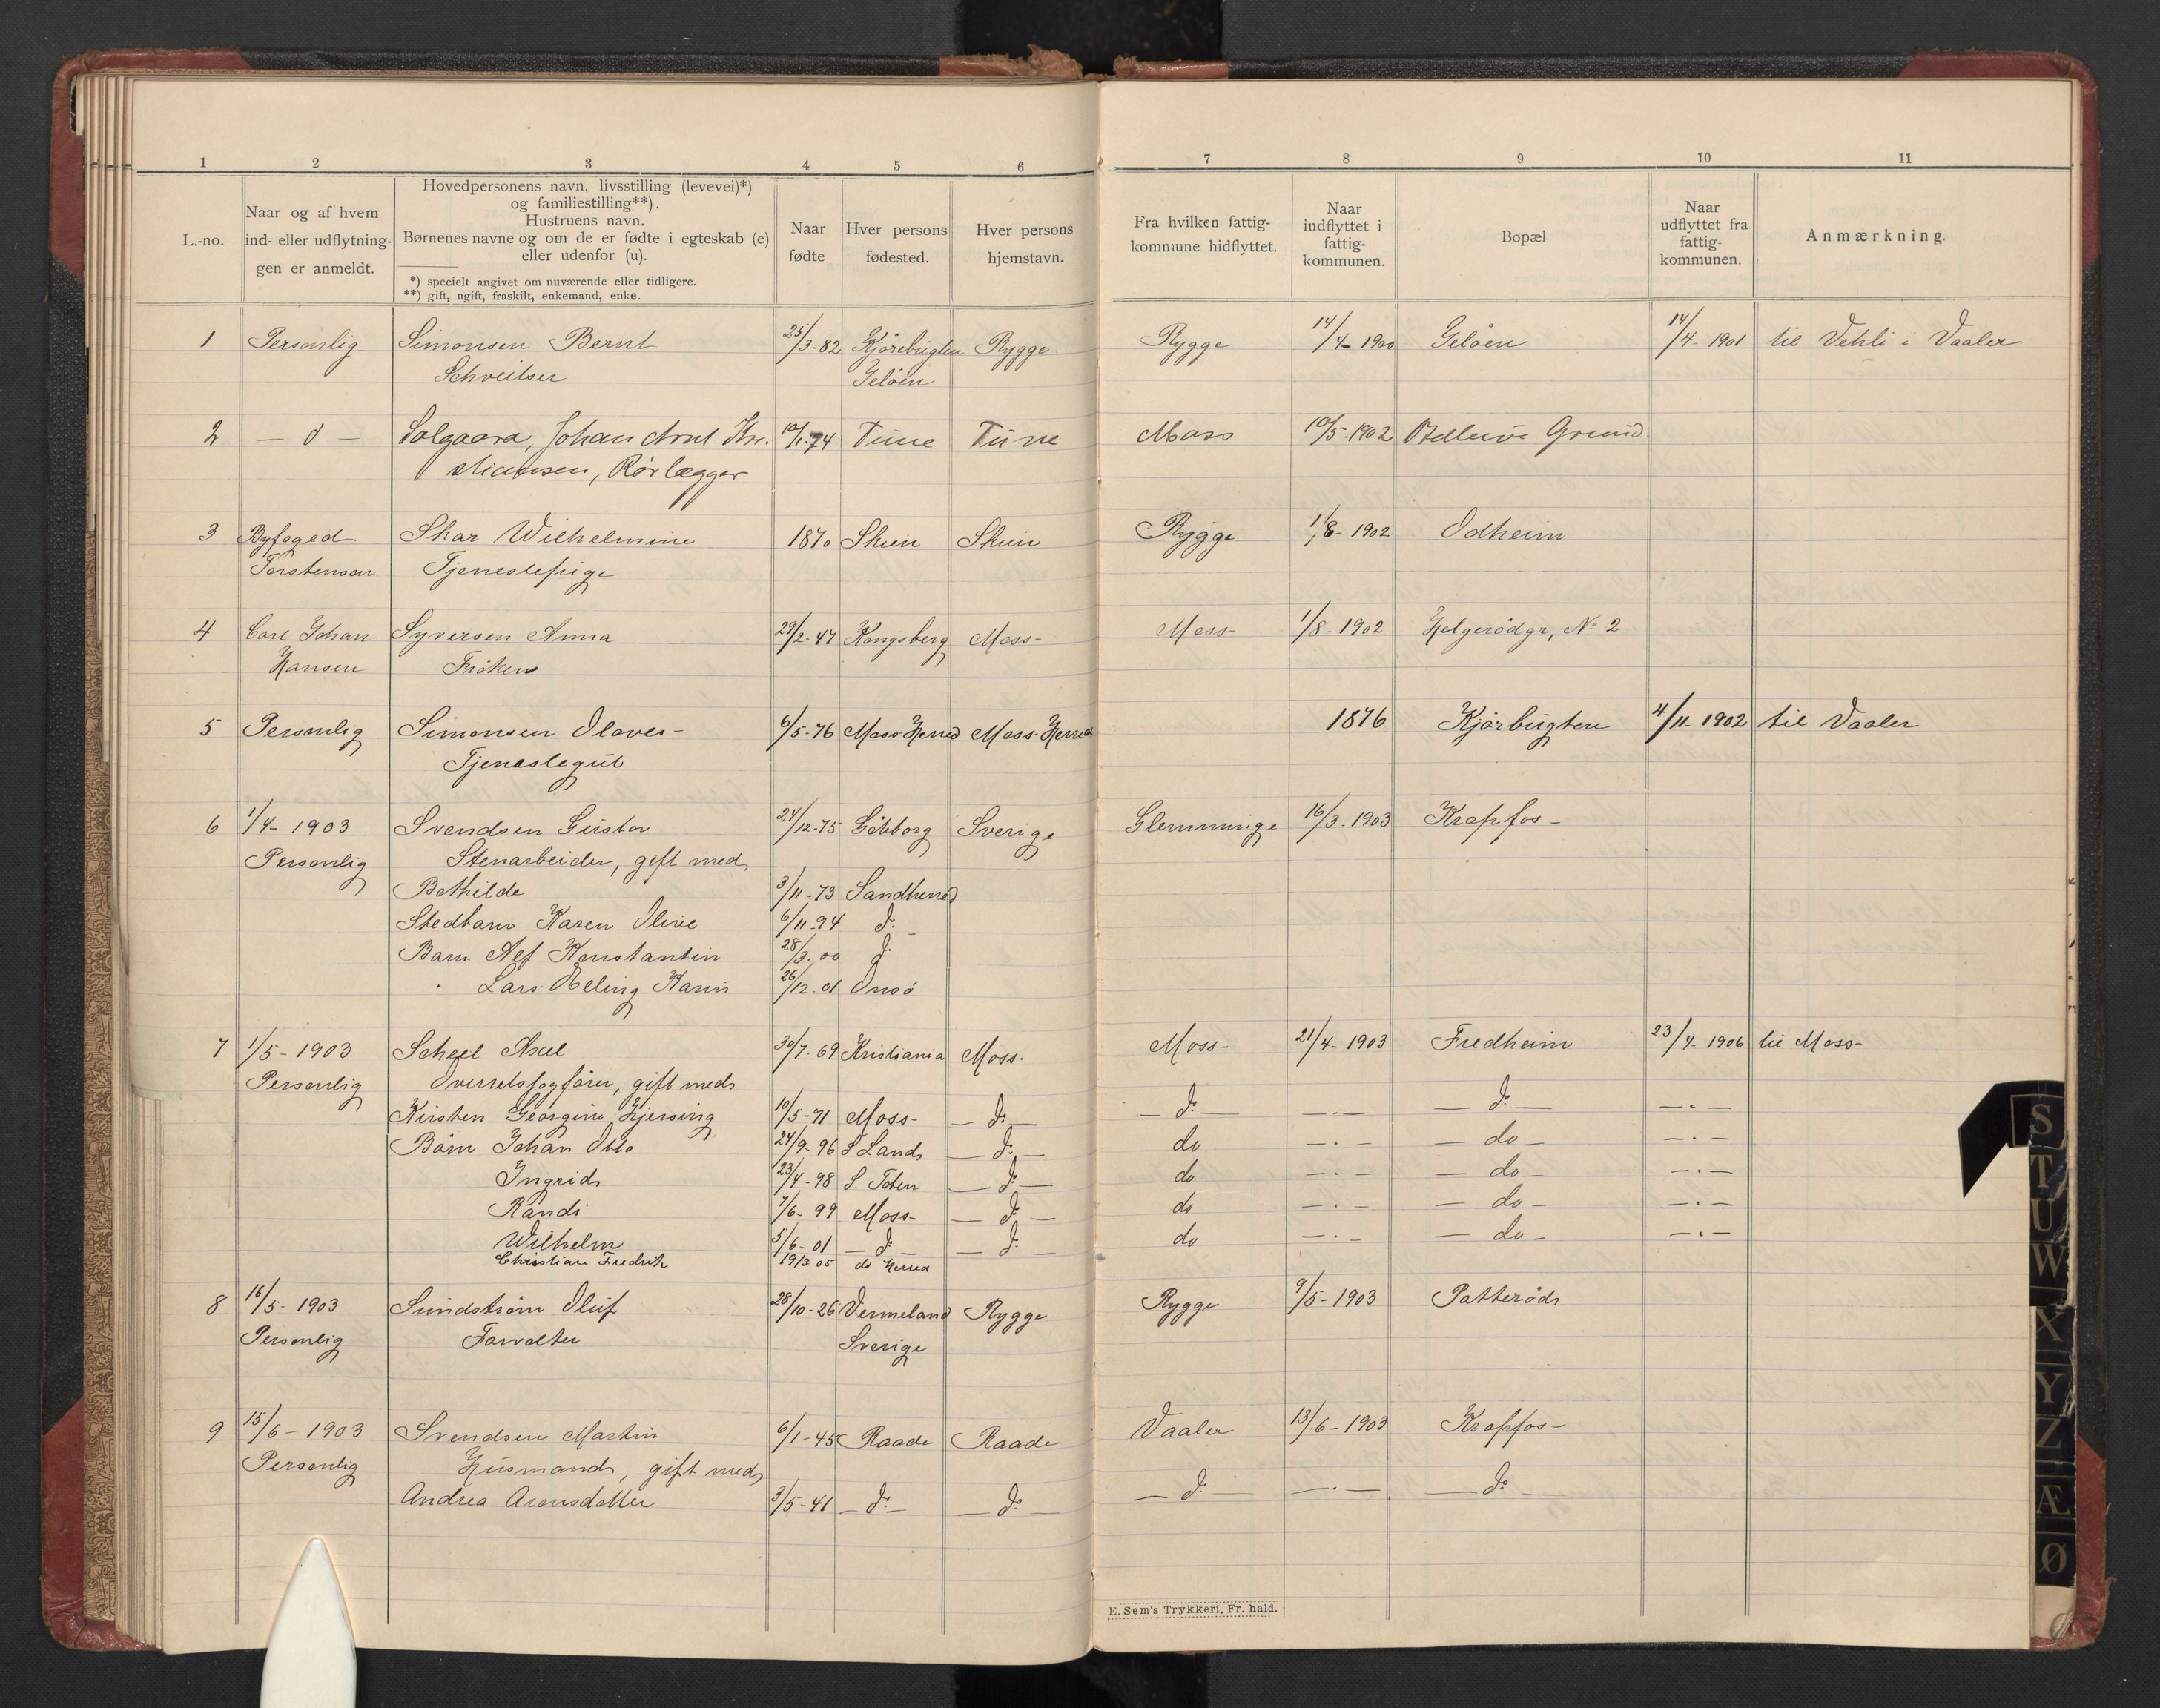 1 2 3 4 5 6 7 8 9 10 11
L.-no.
Naar og af hvem
ind- eller udflytnin-
gen er anmeldt.
Hovedpersonens navn, livsstilling (levevei)*)
og familiestilling**).
Hustruens navn.
Børnenes navne og om de er fødte i egteskab (e)
eller udenfor (u).
*) specielt angivet om nuværende eller tidligere.
**) gift, ugift, fraskilt, enkemand, enke.
Naar
fødte
Hver persons
fødested.
Hver persons
hjemstavn.
Fra hvilken fattig-
kommune hidflyttet.
Naar
indflyttet i
fattig-
kommunen.
Bopæl
Naar
udflyttet fra
fattig-
kommunen.
Anmærkning.
1 Personlig Simonsen Bernt 25/3-82 Kjørebugten Rygge Rygge 14/4-1900 Geløen 14/4-1901 til Vehli i Vaaler
Schveitser Geløen
2 — d — Solgaara, Johan Arnt Kri- 10/1-74 Tune Tune Moss 10/5-1902 Bellevue Grund
stiansen, Rørlægger
3 Byfoged Skar Wilhelmine 1870 Skien Skien Rygge 1/8-1902 Odheim
Torstensen Tjenestepige
4 Carl Johan Syversen Anna 29/2-47 Kongsberg Moss- Moss- 1/8-1902 Helgerødgr, No 2
Hansen Frøken
5 Personlig Simonsen Olaves- 6/5-76 Moss Herred Moss Herred 1876 Kjørbugten 4/11-1902 til Vaaler
Tjenestegut
6 1/4-1903 Svendsen Gustav 24/12-75 Göteborg Sverige Glemminge 16/3-1903 Krapfos-
Personlig Stenarbeider, gift med
Bothilde 3/11-73 Sandherred
Stedbarn Karen Olive 6/11-94 do -
Barn Alf Konstantin 28/3-00 do
" Lars Karin 26/12-01 Onsø
7 1/5-1903 Scheel Axel 30/7-69 Kristiania Moss- Moss- 21/4-1903 Fredheim 23/4-1906 til Moss-
Personlig Overretssagfører, gift med
Kirsten Georgine Hjersing 10/5-71 Moss- — do — — do — — . — — do — — . —
Børn Johan Otto 24/9-96 S Land — do — do — . — — do — — . —
Ingrid 23/4-98 S. Toten — do — do — . — — do — — . —
Randi 7/6-99 Moss- — do — do — . — — do — — . —
Wilhelm 5/6-01 — do — — do — do — . — — do — — . —
Christian Fredrik 19/3 05 do Herred
8 16/5-1903 Sundstrøm Oluf 28/10-26 Vermeland Rygge Rygge 9/5-1903 Patterød
Personlig Forvalter Sverige
9 15/6-1903 Svendsen Martin 6/1-45 Raade Raade Vaaler 13/6-1903 Krapfos-
Personlig Husmand, gift med
Andrea Arensdatter 3/5-41 — do — — do — — do — — . — — do —
E. Sem's Trykkeri, Fr.hald.
S
T
U
W
X
Y
Z
Æ
Ø